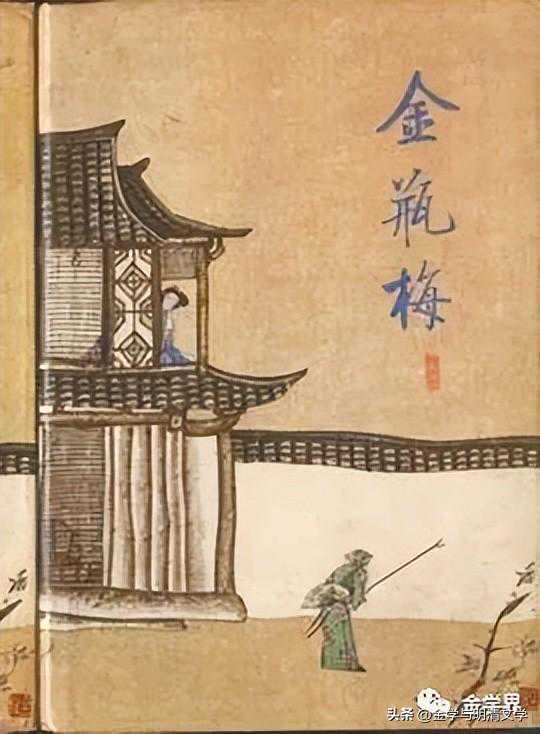 金瓶梅
金学界
头条 @金学与明清文学